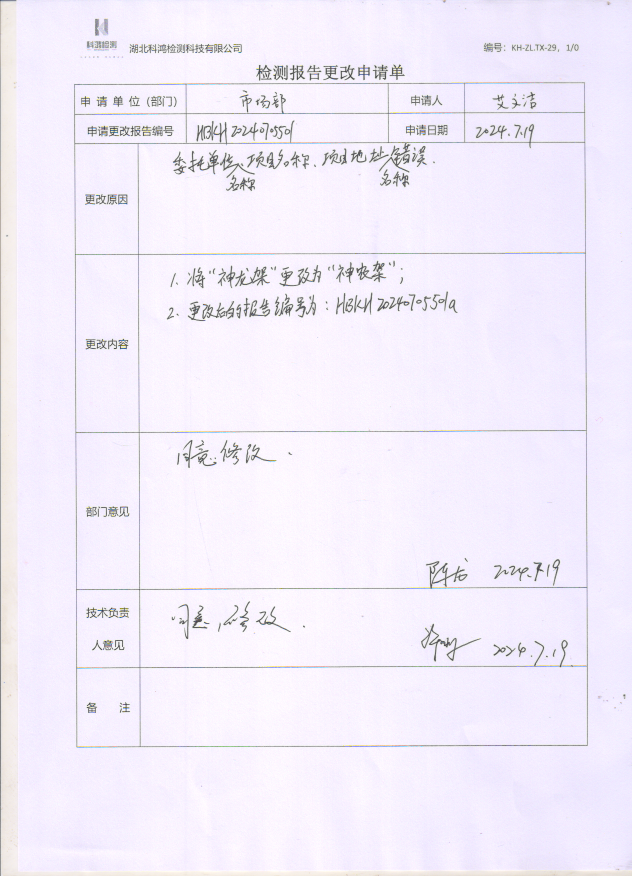 科鸿检测 湖北科鸿检测科技有限公司 编号：KH-ZL.TX-29，1/0
检测报告更改申请单
申请单位（部门） 市场部 申请人 艾文洁
申请更改报告编号 HBKH20240705501 申请日期 2024.7.19
更改原因
委托单位名称、项目名称、项目地址名称错误.
更改内容
1. 将"神龙架"更改为"神农架"；
2. 更改后的报告编号为：HBKH20240705501a
部门意见
同意修改.
陈龙 2024.7.19
技术负责
人意见
同意，修改.
2024.7.19
备 注